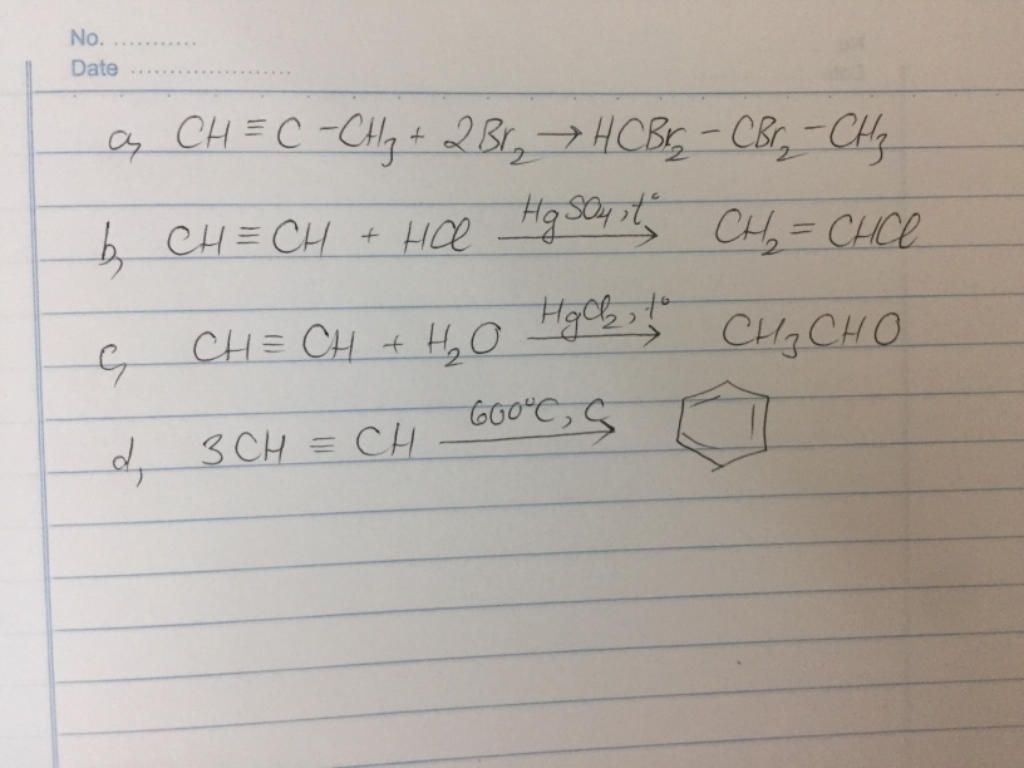 No. ...........
Date .....................
a, CH ≡ C - CH₃ + 2Br₂ → HCBr₂ - CBr₂ - CH₃
b, CH ≡ CH + HCl HgSO₄, t° → CH₂ = CHCl
c, CH ≡ CH + H₂O HgCl₂, t° → CH₃CHO
d, 3CH ≡ CH 600°C, C →